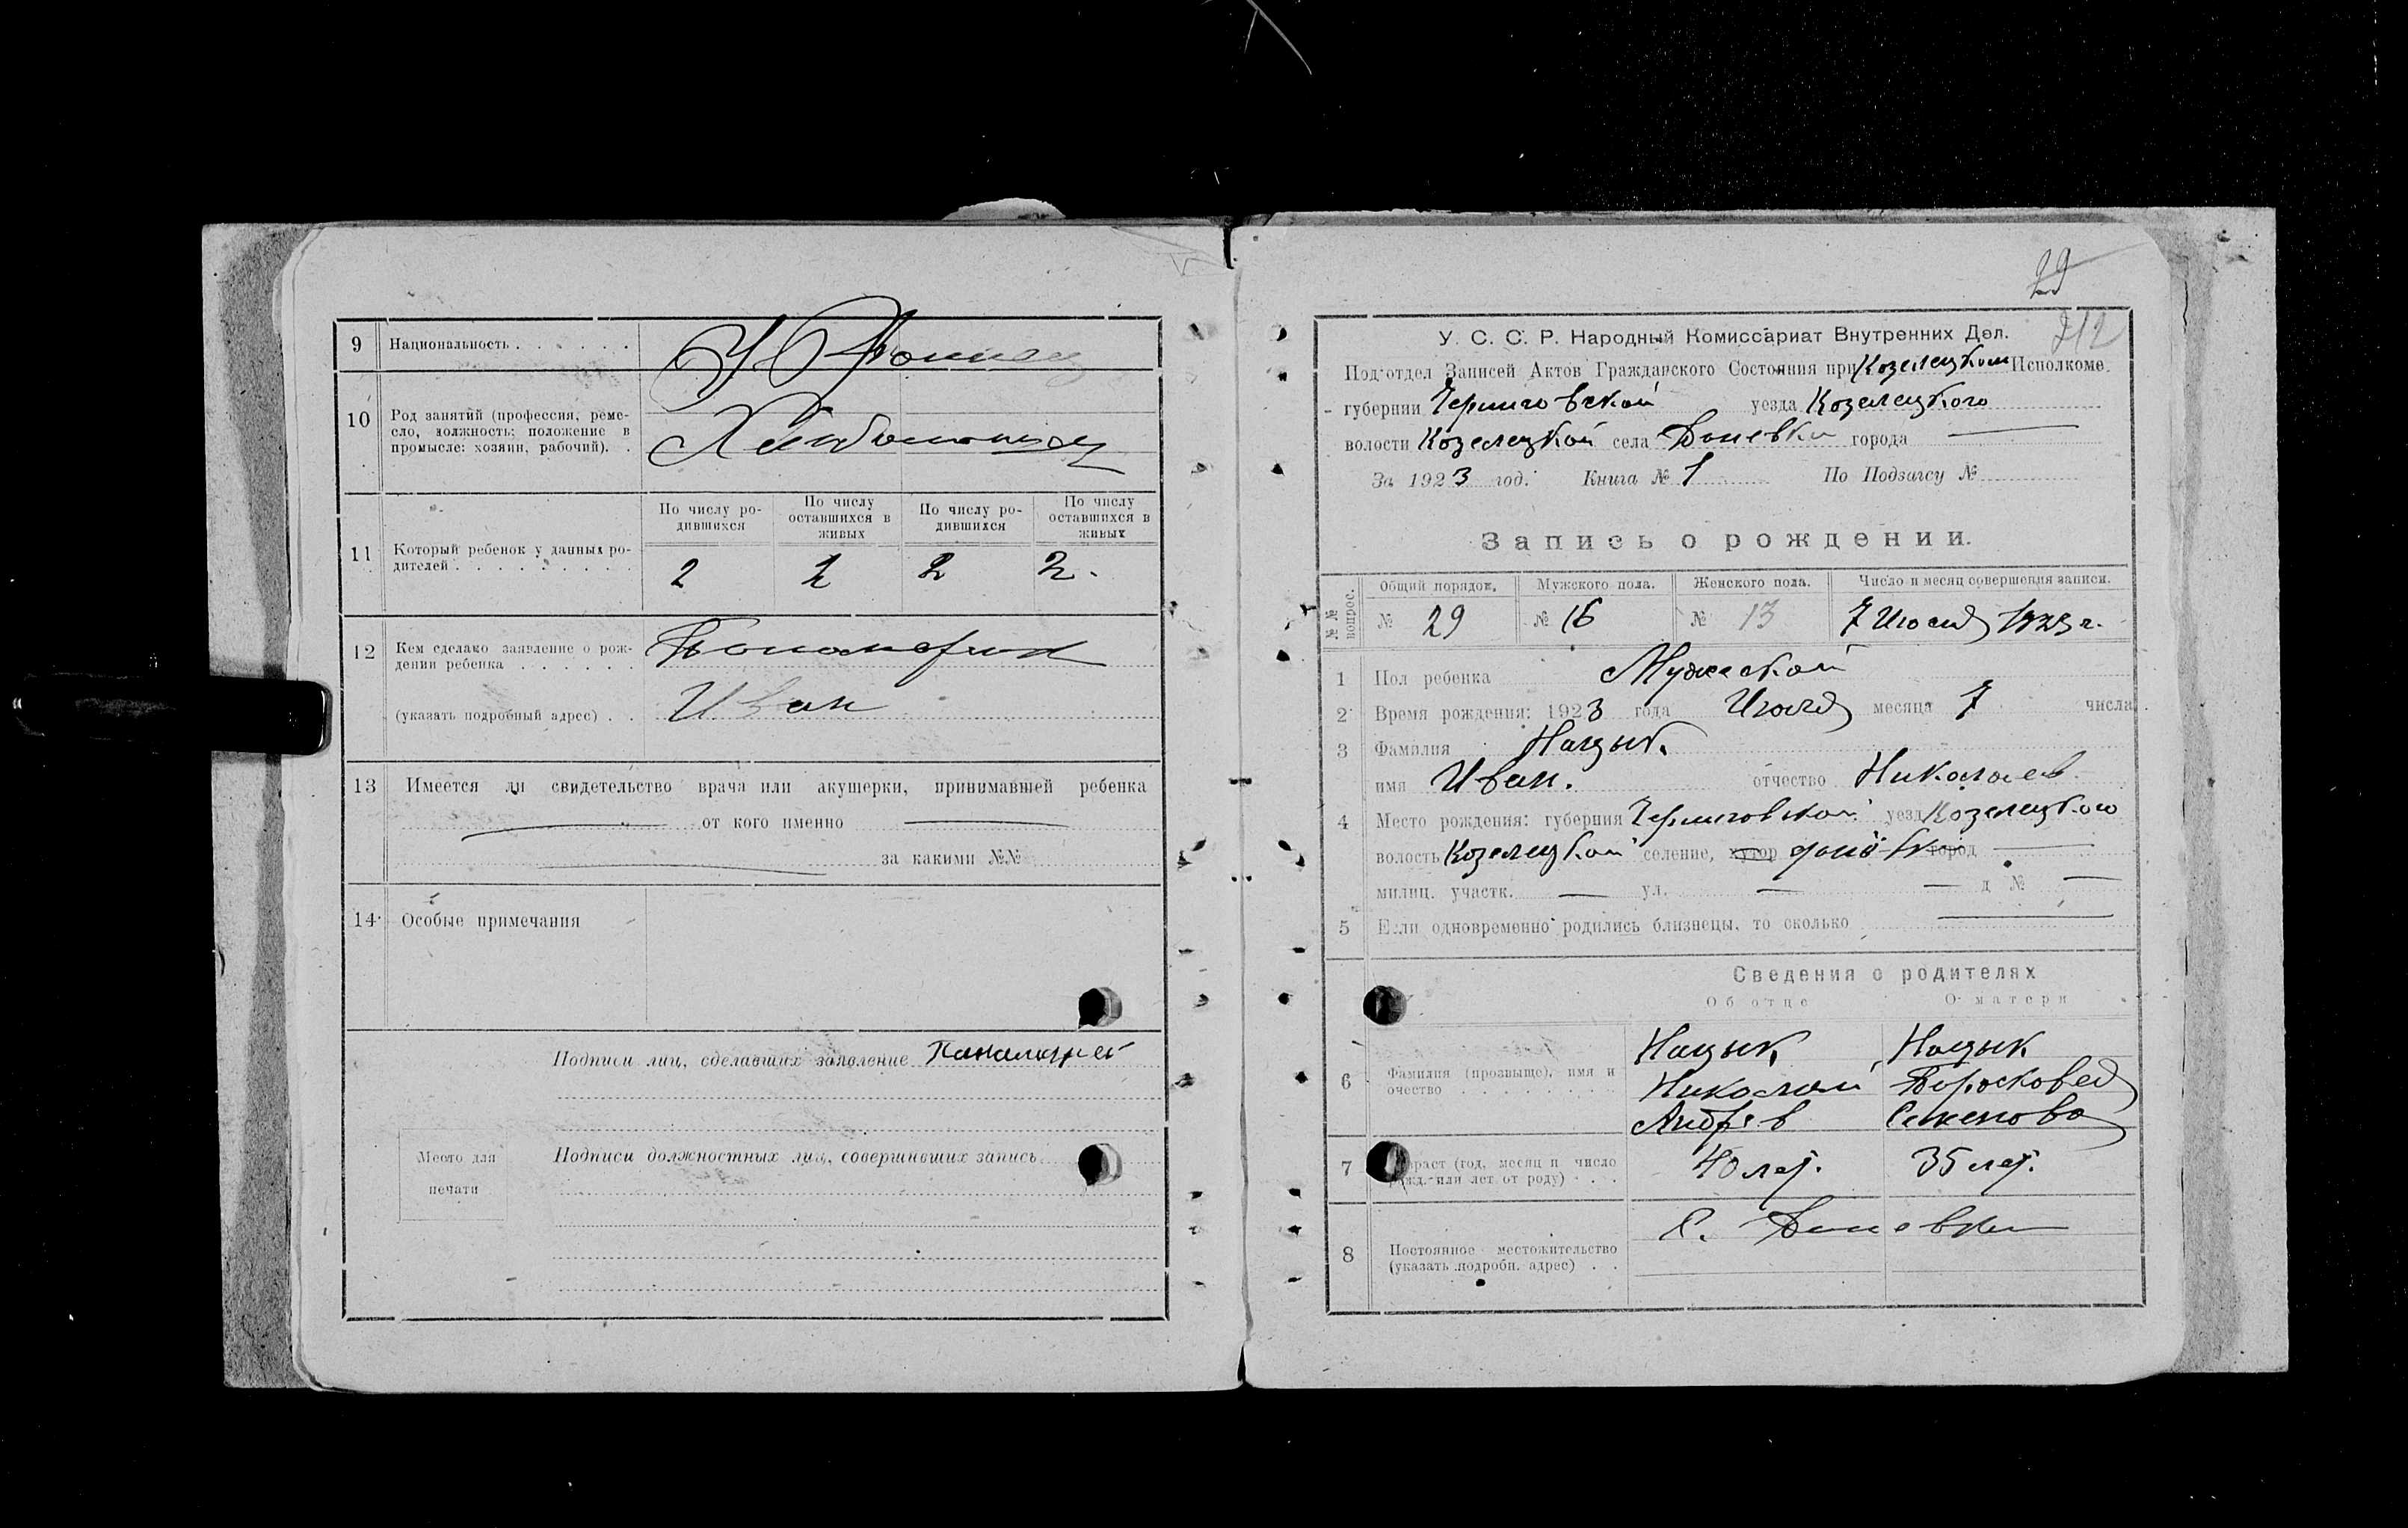 9 Национальность
10 Род занятий (профессия, реме-
сло, должность; положение в
промысле: хозяин, рабочий).
11 Который ребенок у данных ро-
дителей
По числу ро-
дившихся
По числу
оставшихся в
живых
По числу ро-
дившихся
По числу
оставшихся в
живых
2 2 2 2.
12 Кем сделано заявление о рож-
дении ребенка
(указать подробный адрес) Иван
13 Имеется ли свидетельство врача или акушерки, принимавшей ребенка
от кого именно
за какими №№
14 Особые примечания
Подписи лиц, сделавших заявление
Место для
печати
Подписи должностных лиц, совершивших запись
29
212
У. С. С. Р. Народный Комиссариат Внутренних Дел.
Подотдел Записей Актов Гражданского Состояния при Козелецком Исполкоме.
губернии Черниговской уезда Козелецкого
волости Козелецкой села Даневки города
За 1923 год. Книга № 1 По Подзагсу №
Запись о рождении.
№№ вопрос.
Общий порядок. Мужского пола. Женского пола. Число и месяц совершения записи.
№ 29 № 16 № 13 7 Июля 1923 г.
1 Пол ребенка Мужеской
2 Время рождения: 1923 года Июля месяца 7 числа
3 Фамилия Нацык.
имя Иван. отчество Николаев.
4 Место рождения: губерния Черниговской уезд Козелецкого
волость Козелецкой селение, хутор город
милиц. участк. ул. д №
5 Если одновременно родились близнецы, то сколько
Сведения о родителях
Об отце О матери
6 Фамилия (прозвище), имя и
очество
Нацык Нацык
Николай
Андрев Семенова
7 Возраст (год, месяц и число
рожд. или лет от роду) 40 лет. 35 лет.
8 Постоянное местожительство
(указать подробн. адрес)
С. Даневки